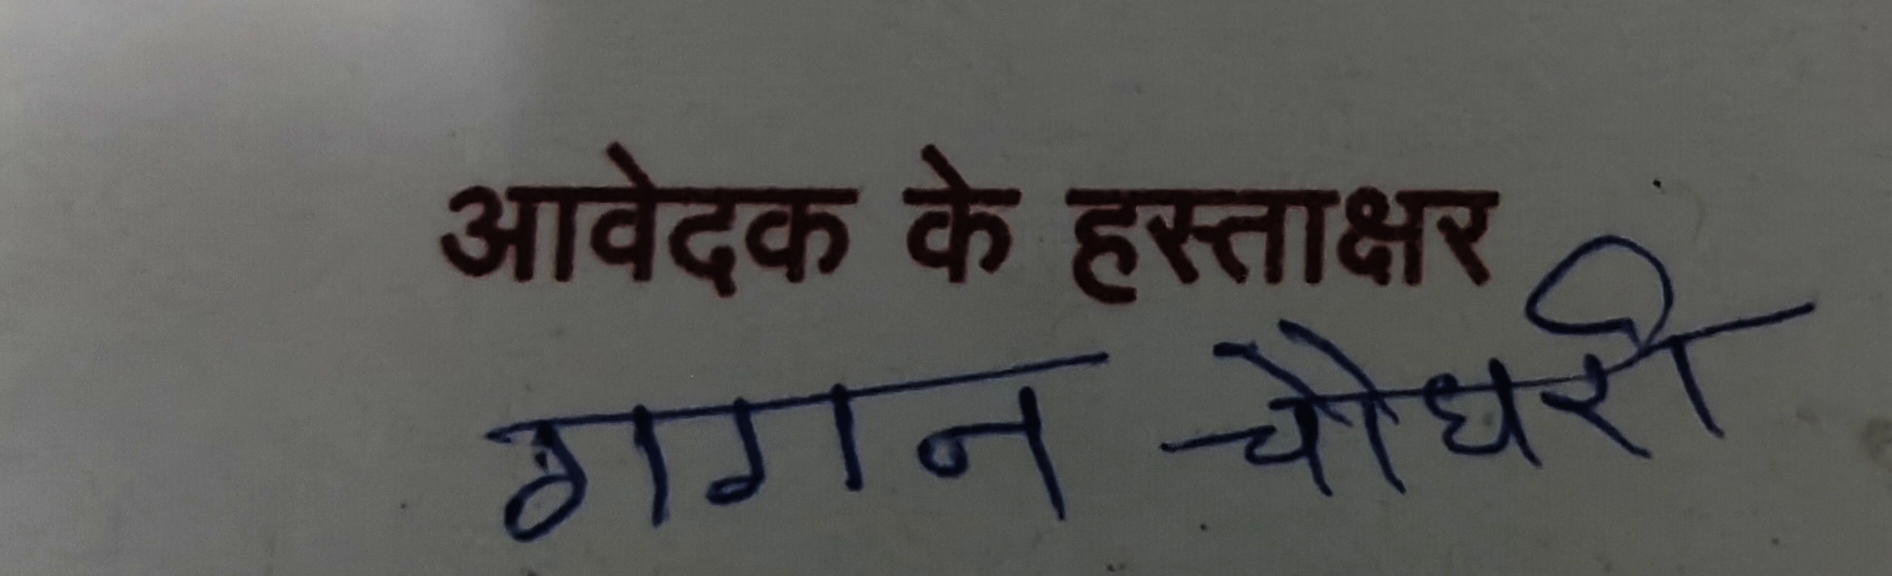 आवेदक के हस्ताक्षर
गगन चौधरी